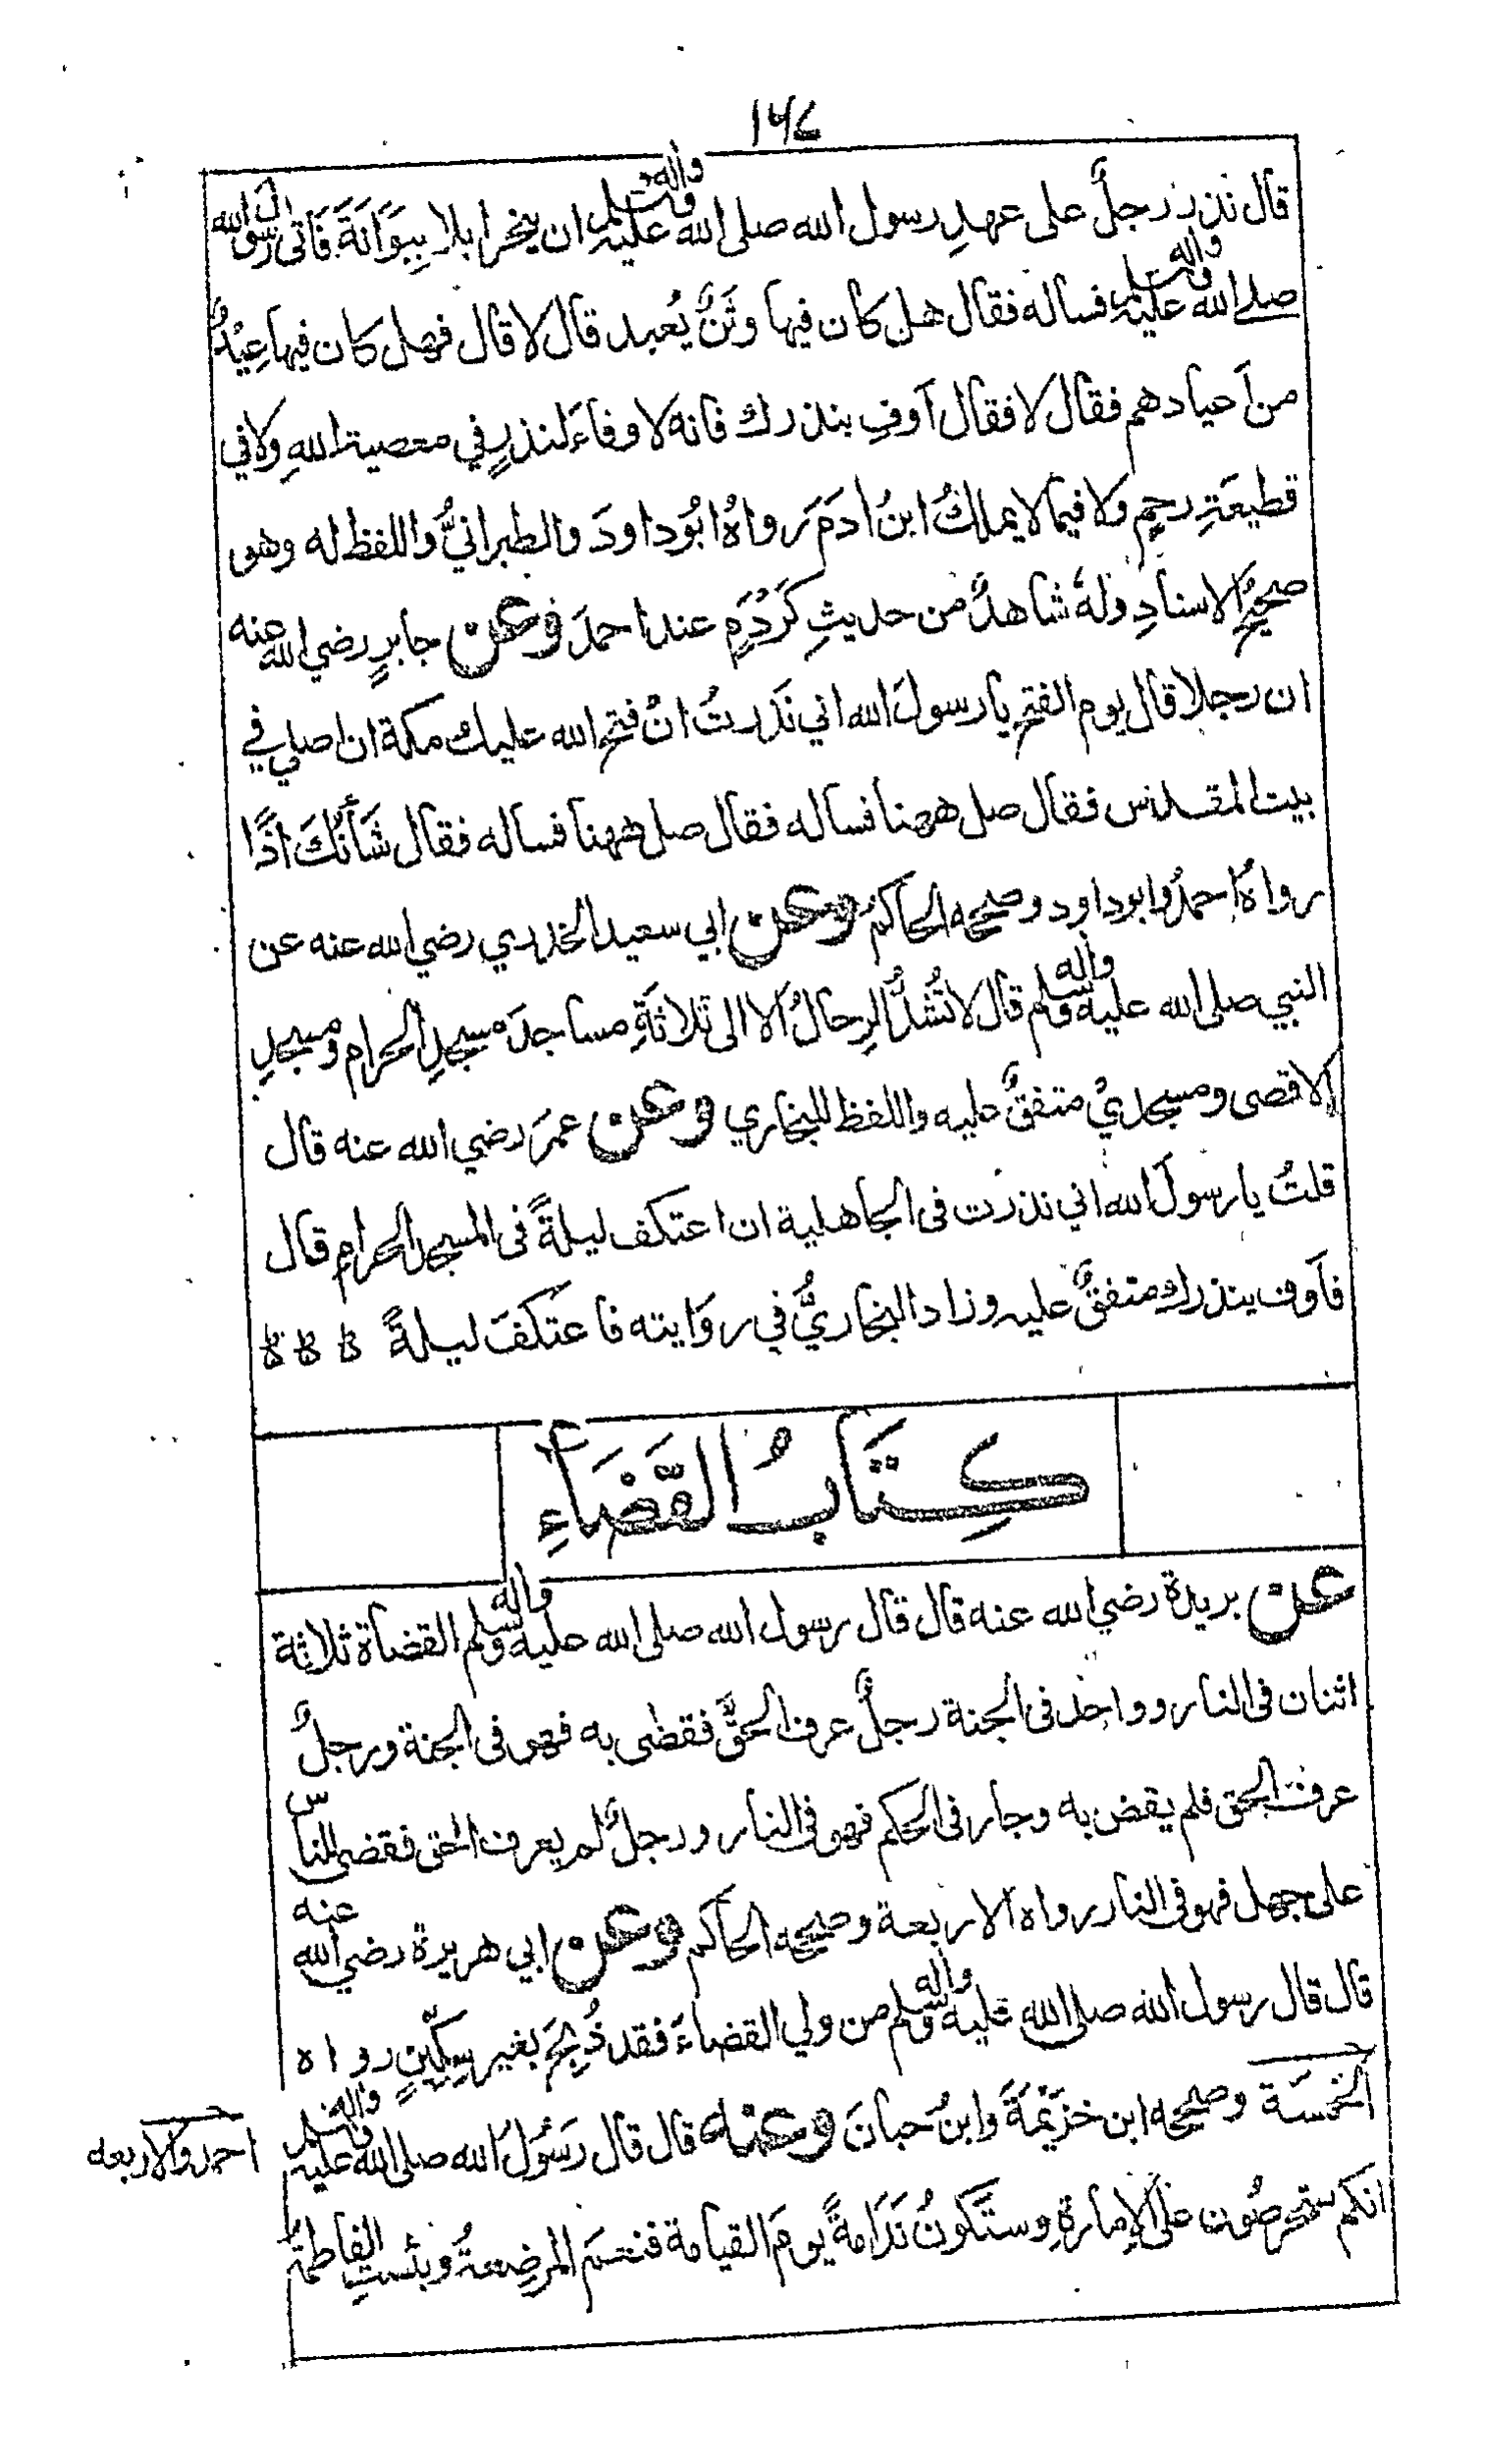 ١٤٧
قال نذر رجلٌ على عهدِ رسول الله صلى الله عليه واله وسلم ان ينحر ابلا بِبَوَانَةَ فَاَتى رسول الله
صلى الله عليه واله وسلم فساله فقال هل كان فيها وثَنٌ يُعبد قال لا قال فهل كان فيها عِيْدٌ
من اَعيادهم فقال لا فقال اَوفِ بنذرك فانه لا وفاءَ لنذرٍ في معصية اللهِ ولا في
قطيعَةِ رحِمٍ ولا فيما لا يملكُ ابنُ ادَمَ رواهُ ابُوداودَ والطبرانيُّ واللفظ له وهو
صحيحُ الاسنادِ ولهُ شاهدٌ من حديثِ كَرْدَمٍ عند احمدَ وعن جابرٍ رضي الله عنه
ان رجلا قال يوم الفتح يا رسولَ الله اني نَذَرتُ انْ فتح الله عليك مكة ان اصلي في
بيت المقدس فقال صل ههنا فساله فقال صل ههنا فساله فقال شَأنَكَ اذًا
رواهُ احمدُ وابوداود وصححه الحاكمُ وعن ابي سعيد الخدري رضي الله عنه عن
النبي صلى الله عليه واله وسلم قال لا تُشَدُّ الرحالُ الا الى ثَلاثَةِ مساجدَ مسجدِ الحرامِ ومسجدِ
الاقصى ومسجديْ متفقٌ عليه واللفظ للبخاري وعن عمرَ رضي الله عنه قال
قلتُ يا رسولَ الله اني نذرت فى الجاهلية ان اعتكف ليلةً فى المسجد الحرامِ قال
فاَوف بنذرك متفقٌ عليه وزاد البخاريُّ في روَايته فاعتَكَفَ ليلةً
كِتَابُ القَضَاءِ
عن بريدة رضي الله عنه قال قال رسول الله صلى الله عليه واله وسلم القضاة ثلاثة
اثنان فى النار وواحد فى الجنة رجلٌ عرف الحقَّ فقضى به فهو فى الجنة ورجلٌ
عرف الحق فلم يقض به وجار فى الحكم فهو فى النار ورجلٌ لم يعرف الحق فقضى للناس
على جهل فهو فى النار رواه الاربعة وصححه الحاكم وعن ابي هريرة رضي الله عنه
قال قال رسول الله صلى الله عليه واله وسلم من ولي القضاءَ فقد ذُبِحَ بغير سِكِّينٍ رواه
الخمسَة وصححه ابن خزَيْمَةَ وابنُ حبانَ وعنه قال قال رَسُولُ الله صلى الله عليه واله وسلم
احمد والاربعه
انكم ستحرصُون علَى الاِمارةِ وستَكونُ نَدَامةً يومَ القيامة فنعمَ المرضِعةُ وبئستِ الفاطمةُ